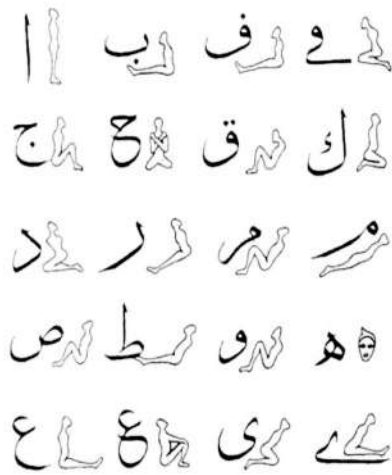 ا ب ف
ج ح ق ك
د ر م م
ص ط و ه
ع ع ى ے